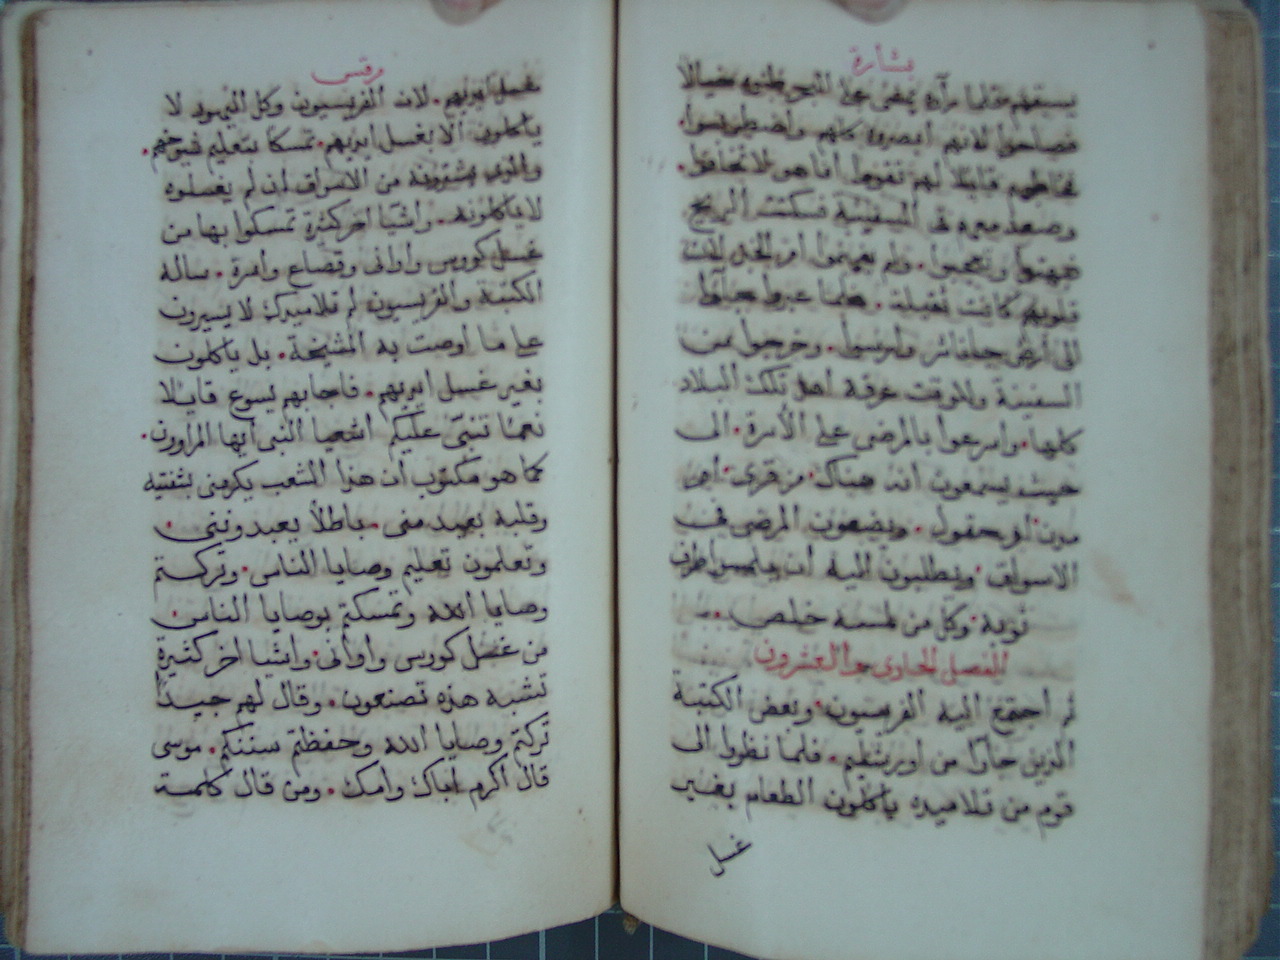 بشارة
يسبقهم فلما رآه يمشي على البحر ظنوه خيالا
فصاحوا لانهم ابصروه كلهم واضطربوا
فخاطبهم قايلا لهم تقووا انا هو لا تخافوا
وصعد معهم الى السفينة فسكنت الريح
فبهتوا وتعجبوا ولم يفهموا امر الخبز لان
قلوبهم كانت ثقيلة فلما عبروا جاوا
الى أرض جيناشر وارسوا وخرجوا من
السفينة وللوقت عرفه اهل تلك البلاد
كلها واسرعوا بالمرضى على الأسرة الى
حيث يسمعون انه هناك من قرى أو
مدن او حقول ويضعون المرضى في
الاسواق ويطلبون اليه ان يلمسوا طرف
ثوبه وكل من لمسه خلص
الفصل الحادي والعشرون
ثم اجتمع اليه الفريسيون وبعض الكتبة
الذين جاوا من اورشليم فلما نظروا الى
قوم من تلاميذه ياكلون الطعام بغير
غسل
مرقس
غسل ايديهم لان الفريسيون وكل اليهود لا
ياكلون الا بغسل ايديهم تمسكا بتعليم شيوخهم
والذي يشترونه من الاسواق ان لم يغسلوه
لا ياكلونه واشيا اخر كثيرة تمسكوا بها من
غسل كووس واواني وقصاع واسرة سأله
الكتبة والفريسيون لم تلاميذك لا يسيرون
على ما اوصت به المشيخة بل ياكلون
بغير غسل ايديهم فاجابهم يسوع قايلا
نعما تنبي عليكم اشعيا النبي ايها المراوون
كما هو مكتوب ان هذا الشعب يكرمني بشفتيه
وقلبه بعيد مني باطلا يعبدونني
وتعلمون تعليم وصايا الناس وتركتم
وصايا الله وتمسكتم بوصايا الناس
من غسل كووس واواني واشيا اخر كثيرة
تشبه هذه تصنعون وقال لهم جيدا
تركتم وصايا الله وحفظتم سننكم موسى
قال اكرم اباك وامك ومن قال كلمة